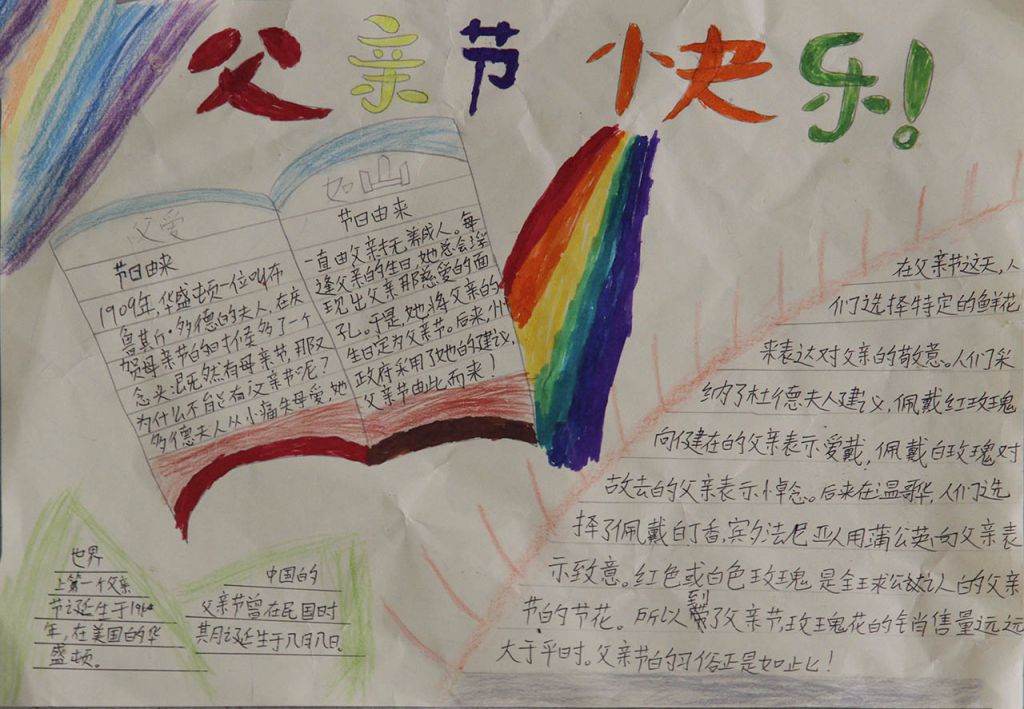 父亲节快乐!
父爱
如山
节日由来
1909年,华盛顿一位叫布
鲁其斤·多德的夫人,在庆
贺母亲节的时候多了一个
念头:既然有母亲节,那又
为什么不能有父亲节呢?
多德夫人从小痛失母爱,她
节日由来
一直由父亲抚养成人。每
逢父亲的生日,她总会浮
现出父亲那慈爱的面
孔。于是,她将父亲的
生日定为父亲节。后来,州
政府采用了她的建议,
父亲节由此而来!
世界
上第一个父亲
节诞生于19
年,在美国的华
盛顿。
中国的
父亲节曾在民国时
其月诞生于八月八日。
在父亲节这天,人
们选择特定的鲜花
来表达对父亲的敬意。人们采
纳了杜德夫人建议,佩戴红玫瑰
向仔建在的父亲表示爱戴,佩戴白玫瑰对
故去的父亲表示悼念。后来在温哥华,人们选
择了佩戴白丁香,宾夕法尼亚人用蒲公英向父亲表
示致意。红色或白色玫瑰是全球公认的父亲
节的节花。所以到了父亲节,玫瑰花的销售量远远
大于平时。父亲节的习俗正是如此!